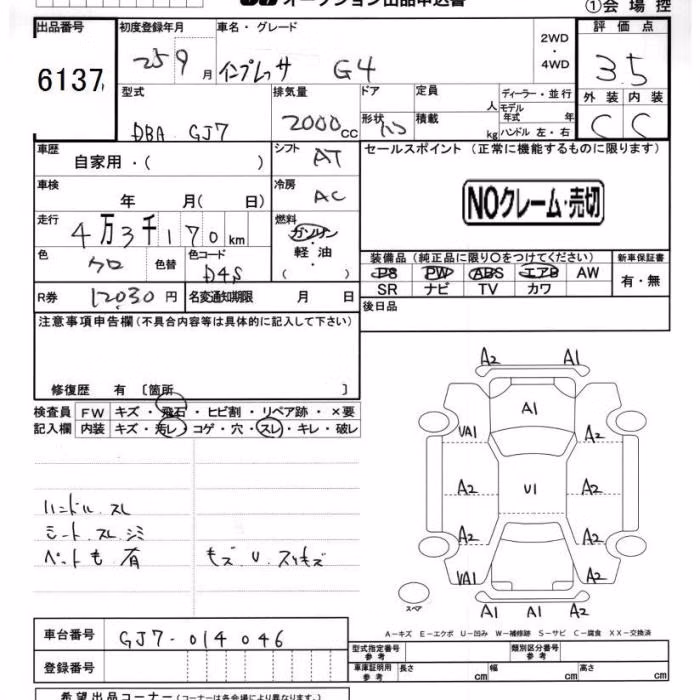 オークション出品申込書
①会場控
出品番号
6137
初度登録年月
25 9 月
車名・グレード
インプレッサ G4
2WD
・
4WD
評価点
3.5
外装 内装
C C
型式
DBA GJ7
排気量
2000 cc
ドア
形状
定員
人
積載
kg
ディーラー・並行
モデル
年式 年
ハンドル 左・右
車歴
自家用・( )
シフト
AT
セールスポイント (正常に機能するものに限ります)
NOクレーム・売切
車検
年 月( 日)
冷房
AC
走行
4万3千170km
燃料
ガソリン
・
軽油
・
( )
色
クロ
色替
色コード
D4S
装備品 (純正品に限り〇をつけてください)
PS PW ABS エアB AW
SR ナビ TV カワ
新車保証書
有・無
R券
12030円
名変通知期限 月 日
後日品
注意事項申告欄 (不具合内容等は具体的に記入して下さい)
修復歴 有 〔箇所 〕
検査員 FW キズ・飛石・ヒビ割・リペア跡・×要
記入欄 内装 キズ・汚レ・コゲ・穴・スレ・キレ・破レ
ハンドル スレ
シート スレ シミ
ペットも 有
キズ U スリキズ
A2 A1
A1
VA1 A2
A2 U1 A2
A2 A2
VA1 A2
スペア
A1 A1 A2
A-キズ E-エクボ U-凹み W-補修跡 S-サビ C-腐食 XX-交換済
車台番号
GJ7-014046
登録番号
型式指定番号
参考
類別区分番号
参考
車庫証明用
参考
長さ cm 幅 cm 高さ cm
希望出品コーナー (コーナーは各会場により異なります。)